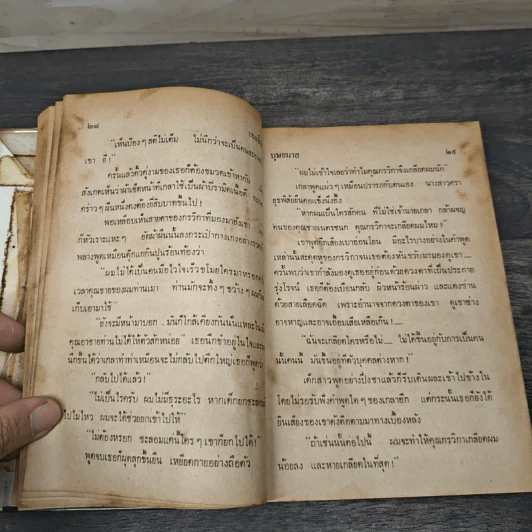 ๒๘
"เห็นป๋องๆ สติไม่เต็ม ไม่นึกว่าจะเป็นคน
เขา อี๋!"
ครั้นแล้วคิ้วคู่งามของเธอก็ต้องขมวดเข้าหากัน
สังเกตเห็นว่าผ้าเช็ดหน้าที่เกลาใช้เป็นผ้า
คราวๆ ผืนหนึ่งคงต้องยี่สิบบาทขึ้นไป!
พอเหลือบเห็นสายตาของกรวิกาที่มองมายัง
ก็หัวเราะแหะๆ ยัดผ้าผืนนั้นลงกระเป๋ากางเกงอย่าง
พลางพูดเหมือนตุ๊กแกกินปูนร้อนท้องว่า
"ผมไม่ได้เป็นคนมือไวใจเร็วขโมยใครมาหรอก
เวลาคุณชายของผมท่านเมา ท่านมักจะทิ้งๆ ขว้างๆ
เก็บเอามาใช้"
"ยังจะมีหน้ามาบอก มันก็ใกล้เคียงกันนั่นแหละ
คุณอาชายท่านไม่ได้ให้ตัวสักหน่อย" เธอนึกขำอยู่ในใจ
นักขึ้นได้ว่าเกลาทำท่าเหมือนจะไม่กลับไปตึกใหญ่เธอก็
"กลับไปได้แล้ว!"
"ไม่เป็นไรครับ ผมไม่มีธุระอะไร หากเด็กยกชะลอม
ไปไม่ไหว ผมจะได้ช่วยยกเข้าไปให้"
"ไม่ต้องหรอก ชะลอมแค่นี้ใครๆ เขาก็ยกไปได้!"
พูดจบเธอก็ผุดลุกขึ้นยืน เหยียดกายอย่างถือตัว
บุษยบาส
๒๙
"ผมไม่เข้าใจเลยว่าทำไมคุณกรวิกาจึงเกลียดผมนัก"
เกลาพูดแผ่วๆ เหมือนปรารภกับตนเอง นางสาวครา
ยุรพัสยืนคอแข็งนิ่งขึ้ง
"หากผมเป็นใครสักคน ที่ไม่ใช่เจ้านายเกลา กล้าผจญ
คนของคุณชายเนตรชนก คุณกรวิกาจะเกลียดผมไหม!"
เขาพูดตึกเสียงเบาอ่อนโยน มีอะไรบางอย่างในคำพูด
เหล่านั้นสะดุดหูของกรวิกาจนเธอต้องหันขวับมามองดูเขา....
ครั้นพบว่าเขากำลังมองดูเธออยู่ก่อนด้วยดวงตาที่เป็นประกาย
รุ่งโรจน์ เธอก็ต้องเบือนกลับ ผิวหน้าร้อนผ่าว และแดงซ่าน
ด้วยสายเลือดฉีด เพราะอำนาจจากดวงตาของเขา ดูเขาช่าง
อาจหาญและอาจเอื้อมเสียเหลือเกิน!....
"ฉันจะเกลียดใครหรือไม่.... ไม่ได้ขึ้นอยู่กับการเป็นคน
นั้นคนนี้ มันขึ้นอยู่ที่ตัวบุคคลต่างหาก!"
เด็กสาวพูดอย่างปึ่งชาแล้วก็รีบเดินผละเข้าไปข้างใน
โดยไม่รอรับฟังคำพูดใดๆ ของเกลาอีก แต่กระนั้นเธอก็ยังได้
ยินเสียงของเขาดังติดตามมาทางเบื้องหลัง
"ถ้าเช่นนั้นต่อไปนี้ ผมจะทำให้คุณกรวิกาเกลียดผม
น้อยลง และหายเกลียดในที่สุด!"